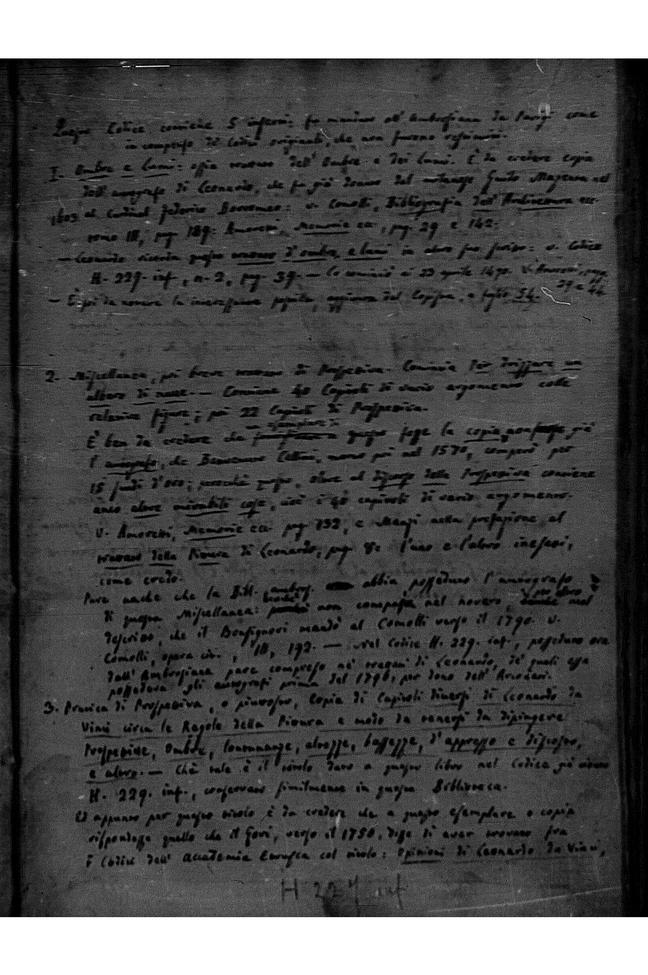 Questo Codice contiene 5 inferi: fu mandato all'Ambrosiana da Parigi come
in compenso di Codici originali, che non furono
I. Ombre e lumi: ossia trattato dell'Ombre e dei lumi. È da credere copia
dell'autografo di Leonardo, che fu già donato dal Guido Mazenta nel
1603 al Cardinal Federico Borromeo: v. Comolli, Bibliografia dell'Architettura ecc.
tomo III, pag. 189: Amoretti, Memorie ec., pag. 29 e 142.
— Leonardo ricorda questo trattato d'ombra, e lumi in altro suo scritto: v. Codice
H. 229. inf., n. 2, pag. 39. — Lo cominciò ai 23 aprile 1490. V. Amoretti, pagg.
29 e 44.
— È poi da notarsi la interessante aggiunta del Copista, a foglio 54.
2. Miscellanea, poi breve trattato di Prospettiva. Comincia Per drizzare un
albero di nave. — Contiene 40 Capitoli di vario argomento colle
relative figure; poi 22 Capitoli di Prospettiva.
È ben da credere che questo fosse la copia, non già
l'autografo, che Benvenuto Cellini, morto poi nel 1570, comperò per
15 scudi d'oro; perchè questo, oltre al discorso della Prospettiva contiene
anco altre mirabili cose, cioè i 40 capitoli di vario argomento.
V. Amoretti, Memorie ecc. pag. 132, e Manzi nella prefazione al
trattato della Pittura di Leonardo, pag. 8: l'uno e l'altro inesatti,
come credo.
Pare anche che la Bibl. ambros. abbia posseduto l'autografo
di questa Miscellanea: non compresa nel novero, nel
descritto, che il Bonsignori mandò al Comolli verso il 1790. v.
Comolli, opera cit., III, 192. — nel Codice H. 229. inf., posseduto ora
dall'Ambrosiana pare compreso ne' trattati di Leonardo, de' quali essa
possedeva gli autografi prima del 1796, per dono dell'Arconati.
3. Pratica di Prospettiva, o piuttosto, Copia di Capitoli diversi di Leonardo da
Vinci circa le Regole della Pittura e modo da tenersi da dipingere
Prospettive, Ombre, lontananze, altezze, bassezze, d'appresso e discosto,
e altro. — Chè tale è il titolo dato a questo libro nel Codice già
H. 229. inf., conservato similmente in questa Biblioteca.
Ed appunto per questo titolo è da credere che a questo esemplare o copia
rispondesse quello che il Gori, verso il 1750, disse di aver trovato fra
i Codici dell'Accademia Etrusca col titolo: Opinioni di Leonardo da Vinci,
H 227 inf